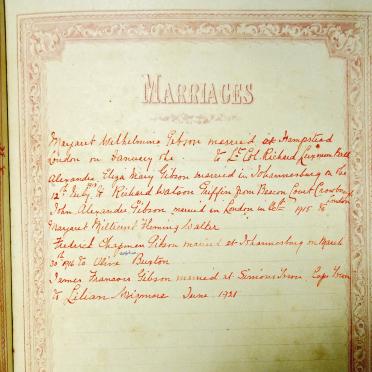 MARRIAGES
Margaret Wilhelmine Gibson married at Hampstead
London on January the to Lt Col. Richard
Alexandra Eliza Mary Gibson married in Johannesburg on the
12th July to Richard Watson Griffin from Beacon Court Crowboro
John Alexander Gibson married in London in Octr 1915 to
Margaret Millicent Fleming Waller
Frederick Chapman Gibson married at Johannesburg on March
30th 1916 to Olive Burton
James Francois Gibson married at Simons Town, Cape Town
to Lilian Wigmore June 1921